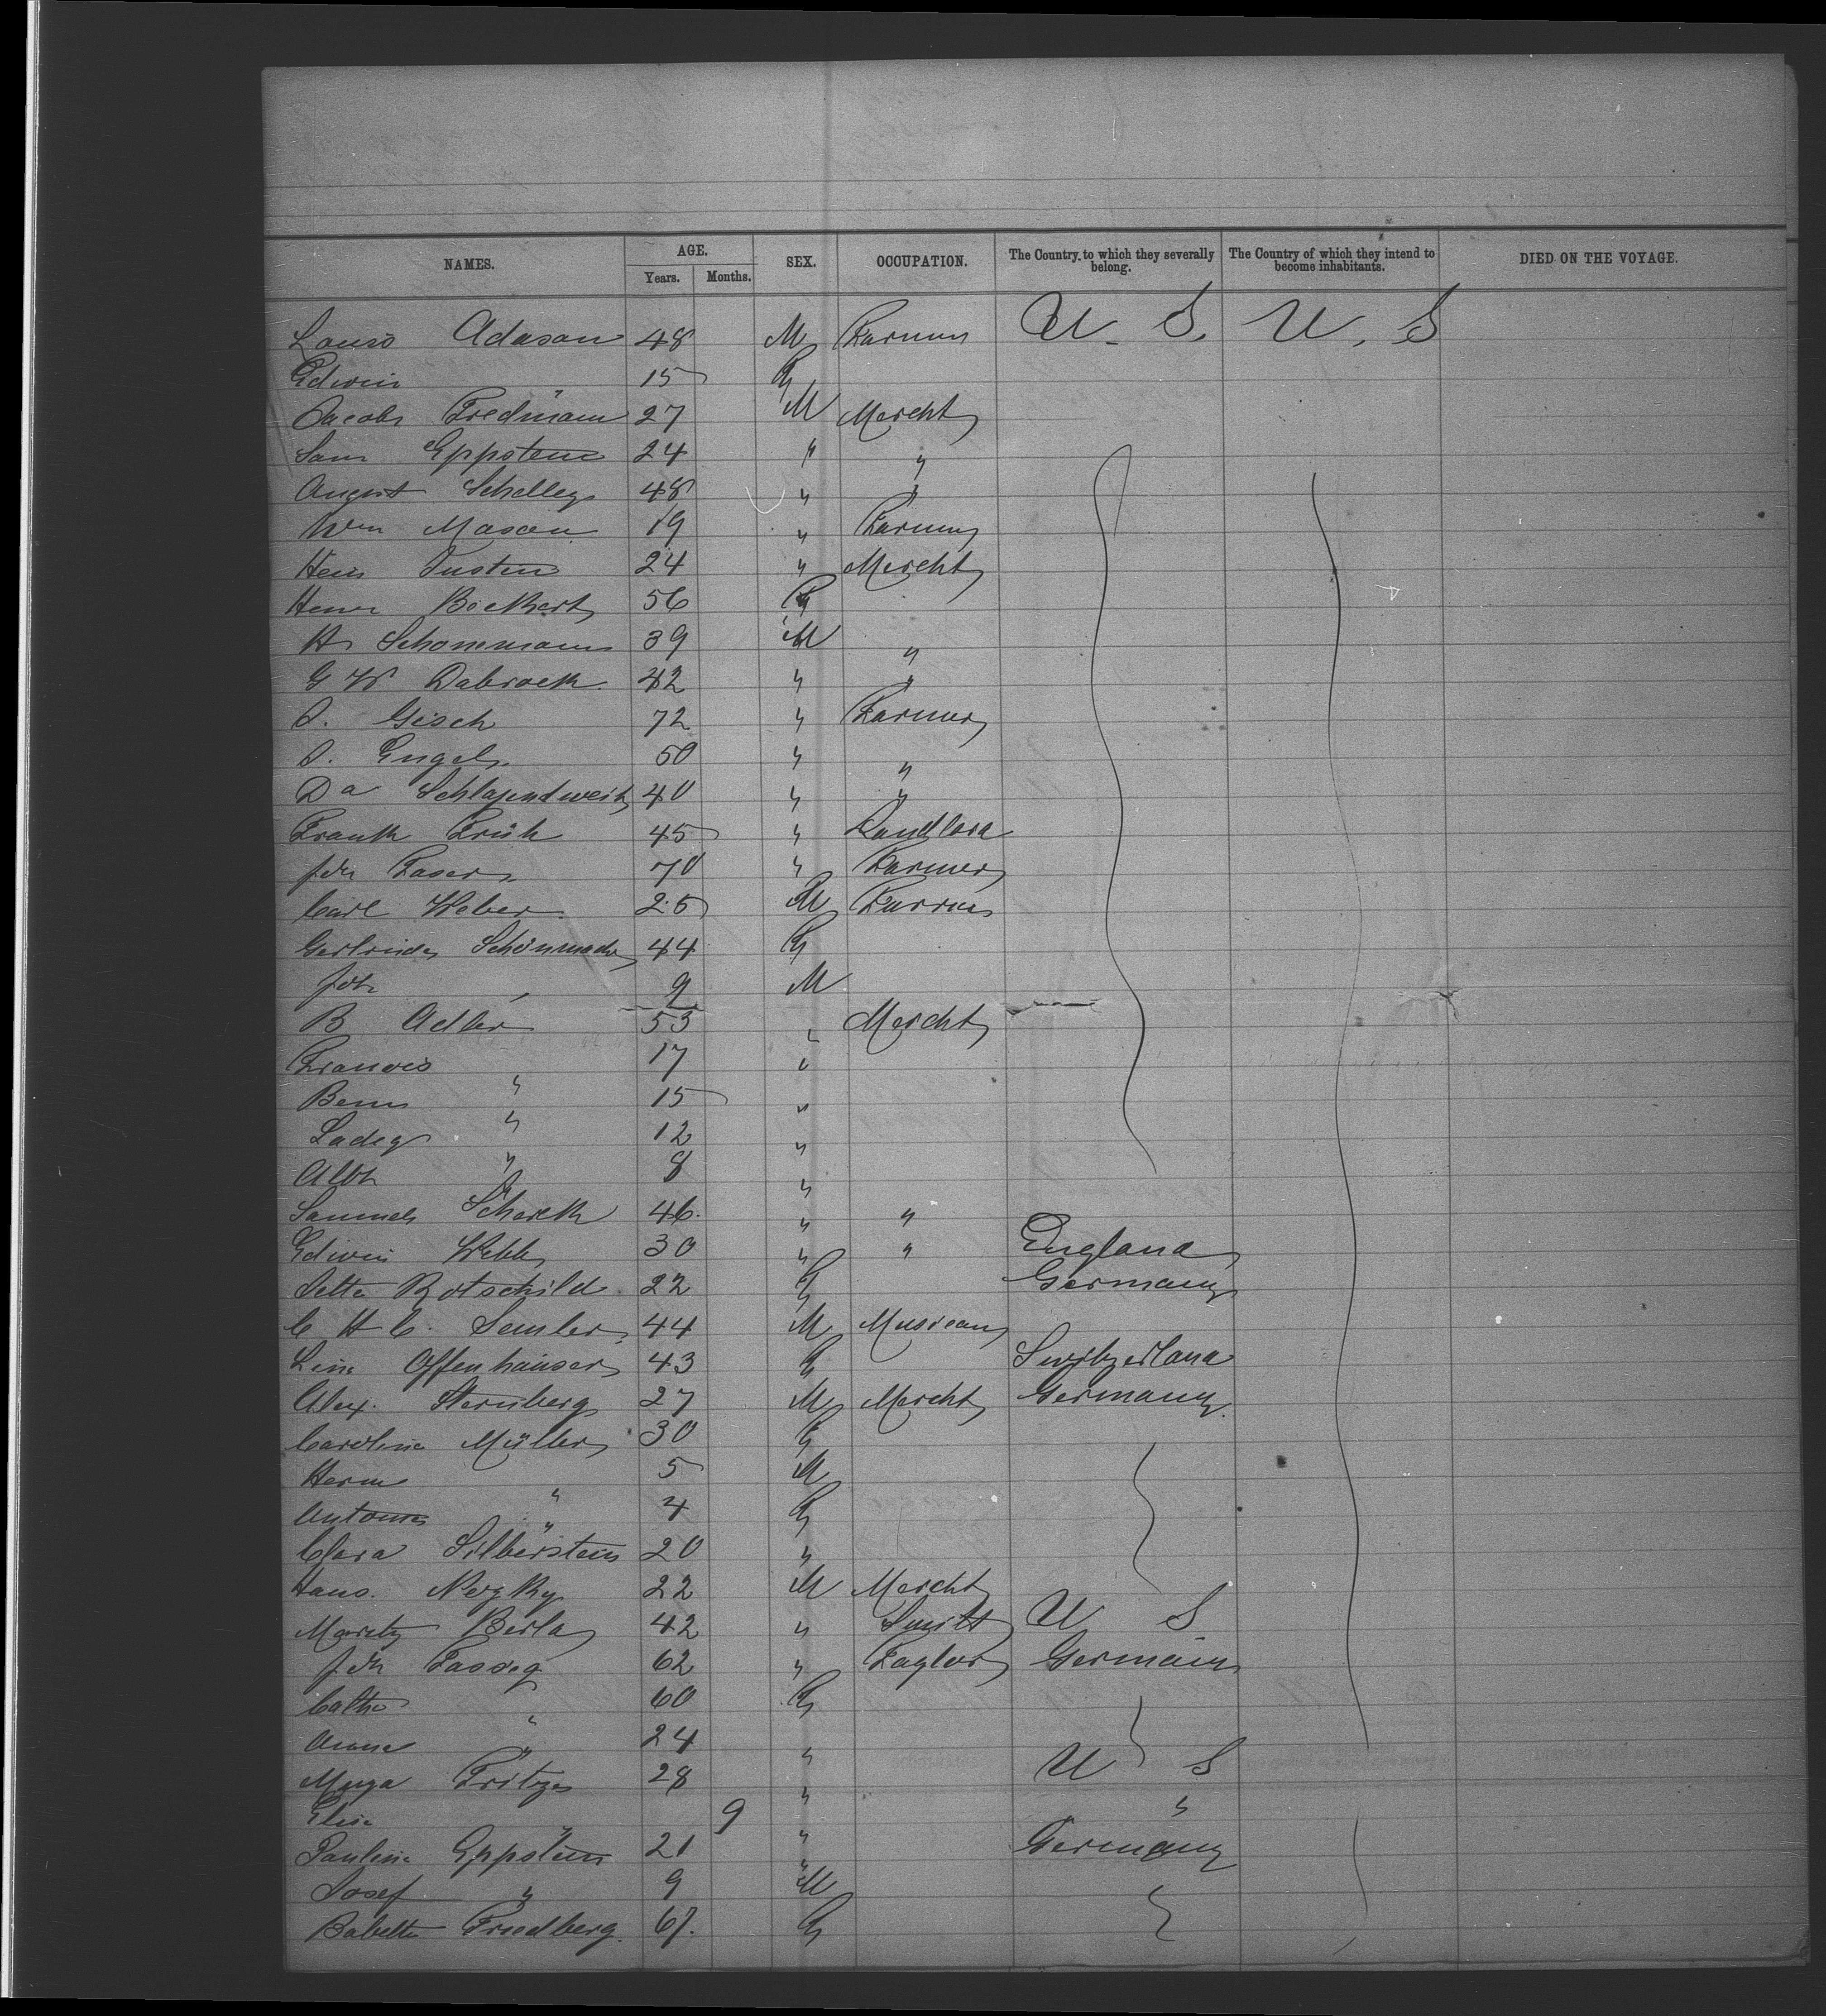 NAMES. AGE. Years. Months. SEX. OCCUPATION. The Country to which they severally belong. The Country of which they intend to become inhabitants. DIED ON THE VOYAGE.
Louis Adason 48 M Farmer U. S. U. S
Edwin " 15 F
Jacob Fredmann 27 M Mercht
Sam Eppstein 24 " "
August Schelley 48 " "
Wm Mason 19 " Farmer
24 " Mercht
56 F
H Schonemann 39 M "
G W Dabrock 42 " "
J. Gisch 72 " Farmer
J. Engel 50 " "
40 " "
Frank Früh 45 " Landlord
Joh Faser 70 " Farmer
Carl Weber 25 M Farmer
Gertrude 44 F
Joh " 9 M
B Adler 53 " Mercht
Francis " 17 "
Benn " 15 "
" 12 "
Alb " 8 "
Samuel Scharek 46 " "
Edwin Webb 30 " " England
Sette Rotschild 22 F Germany
C H C. Semler 44 M Musican
Line Offenhauser 43 F Switzerland
Alex. Sternberg 27 M Mercht Germany
Caroline Müller 30 F
Herm " 5 M
Antonia " 4 F
Clara Silberstein 20 "
Hans. 22 M Mercht
Moritz Berla 42 " Smith U S
Joh 62 " Taylor Germany
Cath " 60 F
Anna " 24 "
28 " U S
Elise " 9 " "
Pauline Eppstein 21 " Germany
Josef " 9 M
Babette Friedberg. 67. F